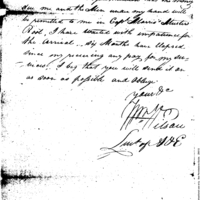 due me and the Men under my hand will be
permitted to me in Capt Harris Muster
Roll, I have waited with impatience for
the arrival. Six Months have elapsed
since my receiving any pay, for my ser-
vices. I beg that you will send it on
as soon as possible and oblige
your &c
Wm Wilson
Lieut of